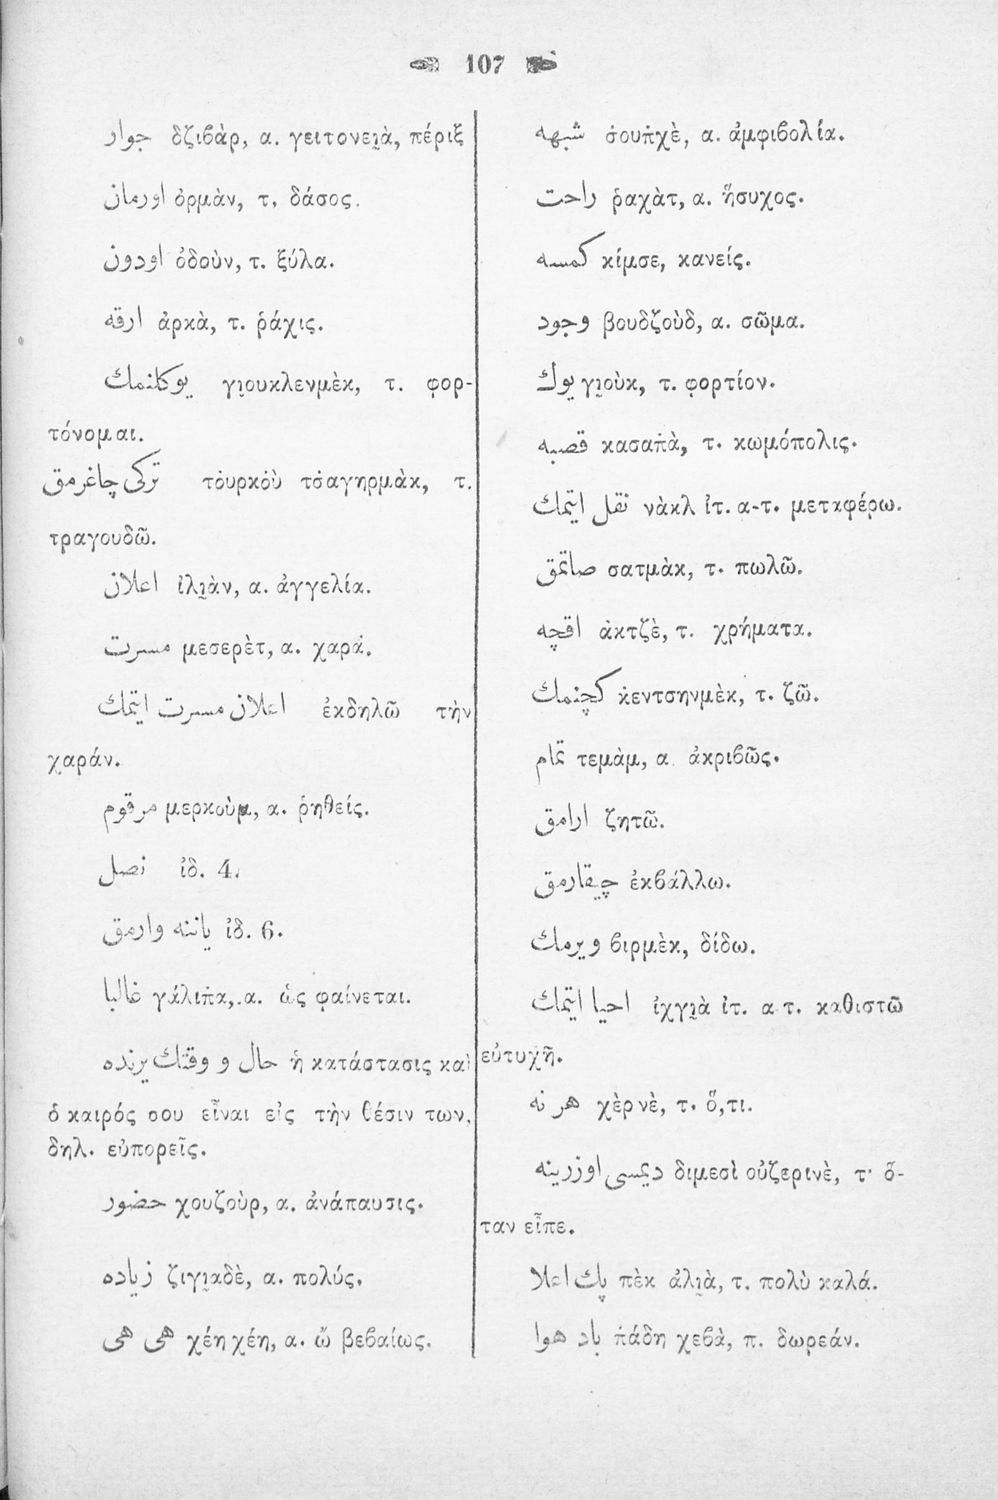 107
جوار δζιβὰρ, α. γειτονειὰ, πέριξ
اورمان ὀρμὰν, τ. δάσος.
اودون ὀδοὺν, τ. ξύλα.
ارقه ἀρκὰ, τ. ῥάχις.
يوكلنمك γιουκλενμὲκ, τ. φορ-
τόνομαι.
تركى چاغرمق τὀυρκὀὺ τσ̇αγηρμὰκ, τ.
τραγουδῶ.
اعلان ἰλιὰν, α. ἀγγελία.
مسرت μεσερὲτ, α. χαρά.
اعلان مسرت ايتمك ἐκδηλῶ τὴν
χαράν.
مرقوم μερκοὺμ, α. ῥηθείς.
نصل ἰδ. 4.
ياننه وارمق ἰδ. 6.
غالبا γάλιπ̇α, α. ὡς φαίνεται.
حال و وقتك يرنده ἡ κατάστασις καὶ
ὁ καιρός σου εἶναι εἰς τὴν θέσιν των,
δηλ. εὐπορεῖς.
حضور χουζοὺρ, α. ἀνάπαυσις.
زياده ζιγιαδὲ, α. πολύς.
هى هى χέη χέη, α. ὢ βεβαίως.
شبهه σ̇ουπ̇χὲ, α. ἀμφιβολία.
راحت ῥαχὰτ, α. ἥσυχος.
كمسه κίμσε, κανείς.
وجود βουδζοὺδ, α. σῶμα.
يوك γιοὺκ, τ. φορτίον.
قصبه κασαπ̇ὰ, τ. κωμόπολις.
نقل ايتمك νὰκλ ἰτ. α-τ. μεταφέρω.
صاتمق σατμὰκ, τ. πωλῶ.
اقچه ἀκτζὲ, τ. χρήματα.
كچنمك κ̇εντσηνμὲκ, τ. ζῶ.
تمام τεμὰμ, α. ἀκριβῶς.
ارامق ζητῶ.
چيقارمق ἐκβάλλω.
ويرمك βιρμὲκ, δίδω.
احيا ايتمك ἰχγιὰ ἰτ. α τ. καθιστῶ
εὐτυχῆ.
هر نه χὲρ νὲ, τ. ὅ,τι.
ديمسى اوزرينه διμεσὶ οὐζερινὲ, τ· ὅ-
ταν εἶπε.
پك اعلا πὲκ ἀλιὰ, τ. πολὺ καλά.
باد هوا π̇άδη χεβὰ, π. δωρεάν.